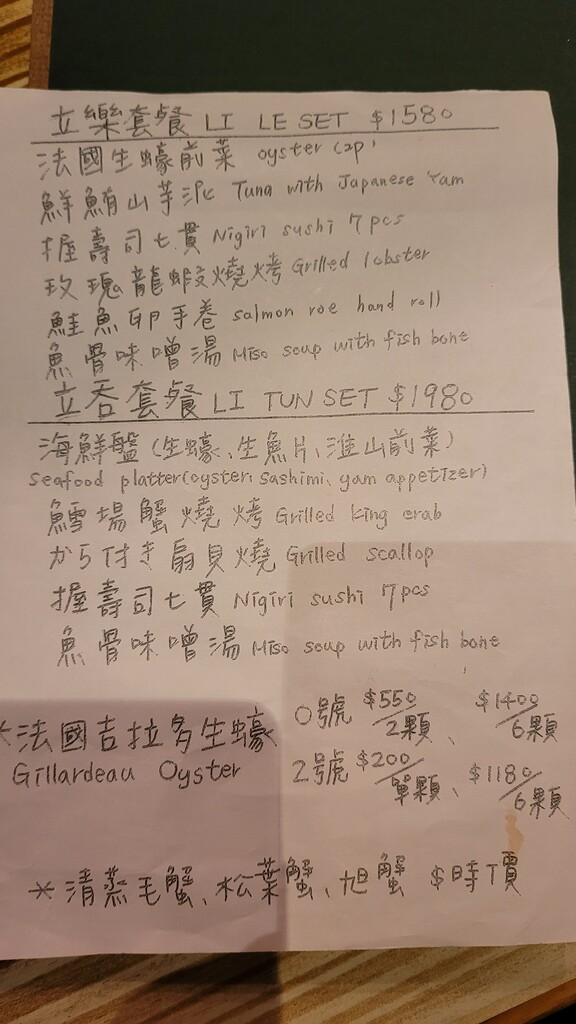 立樂套餐 LI LE SET $1580
法國生蠔前菜 oyster (2p)
鮮鮪山芋泥 Tuna with Japanese Yam
握壽司七貫 Nigiri sushi 7pcs
玫瑰龍蝦燒烤 Grilled lobster
鮭魚卵手卷 salmon roe hand roll
魚骨味噌湯 Miso soup with fish bone
立吞套餐 LI TUN SET $1980
海鮮盤(生蠔、生魚片、淮山前菜)
seafood platter(oyster、sashimi、yam appetizer)
鱈場蟹燒烤 Grilled king crab
から付き扇貝燒 Grilled scallop
握壽司七貫 Nigiri sushi 7pcs
魚骨味噌湯 Miso soup with fish bone
*法國吉拉多生蠔 0號 $550/2顆、$1400/6顆
Gillardeau Oyster 2號 $200/單顆、$1180/6顆
*清蒸毛蟹、松葉蟹、旭蟹 $時價